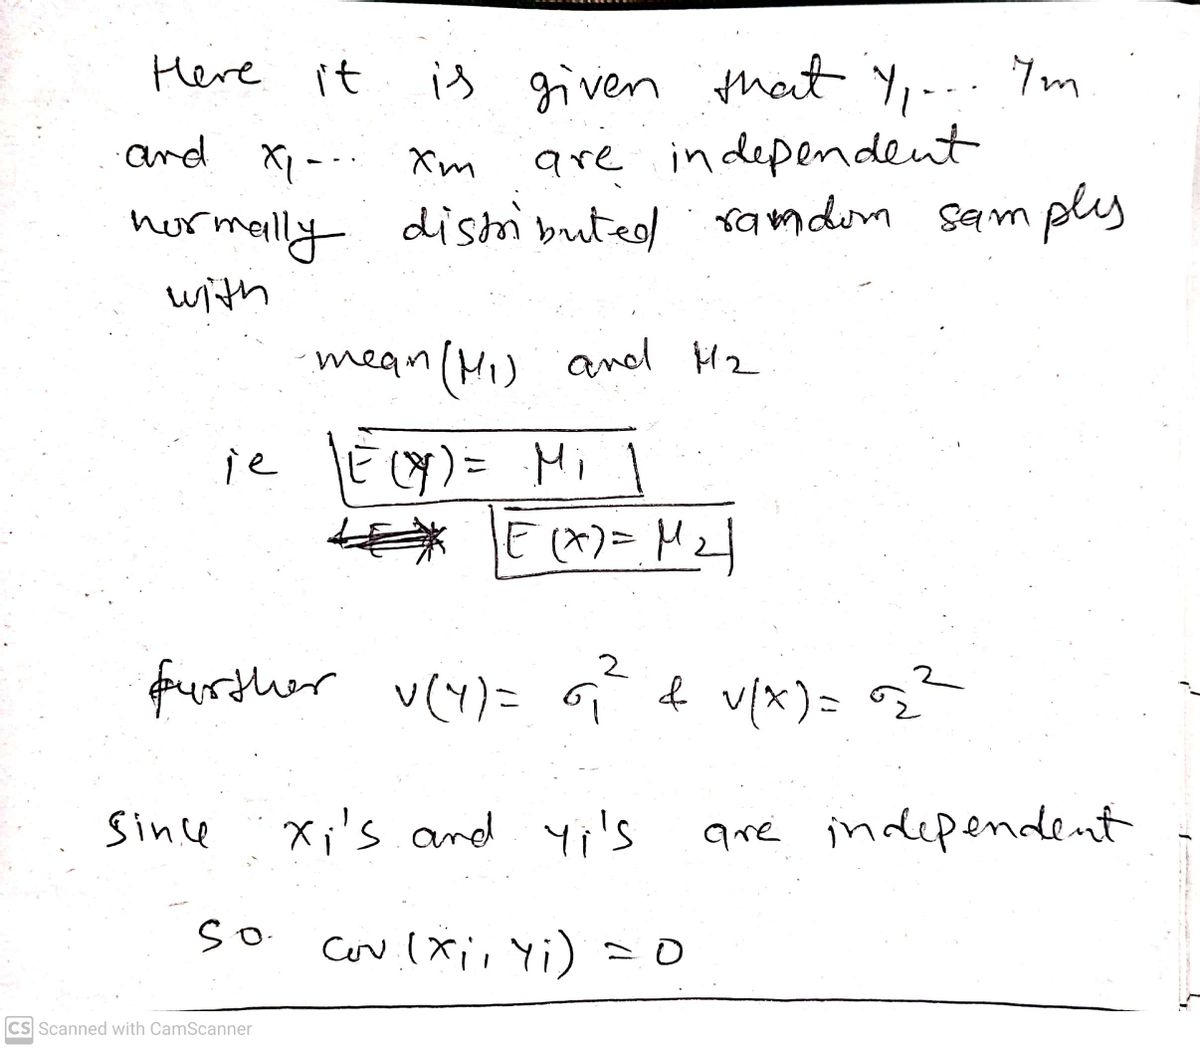 Here it is given that Y₁ --- Ym
and X₁ --- Xm are independent
normally distributed random samples
with
mean (μ₁) and μ₂
ie E(Y) = μ₁
E(X) = μ₂
further V(Y) = σ₁² & V(X) = σ₂²
Since Xi's and Yi's are independent
So Cov (Xi, Yi) = 0
CS Scanned with CamScanner